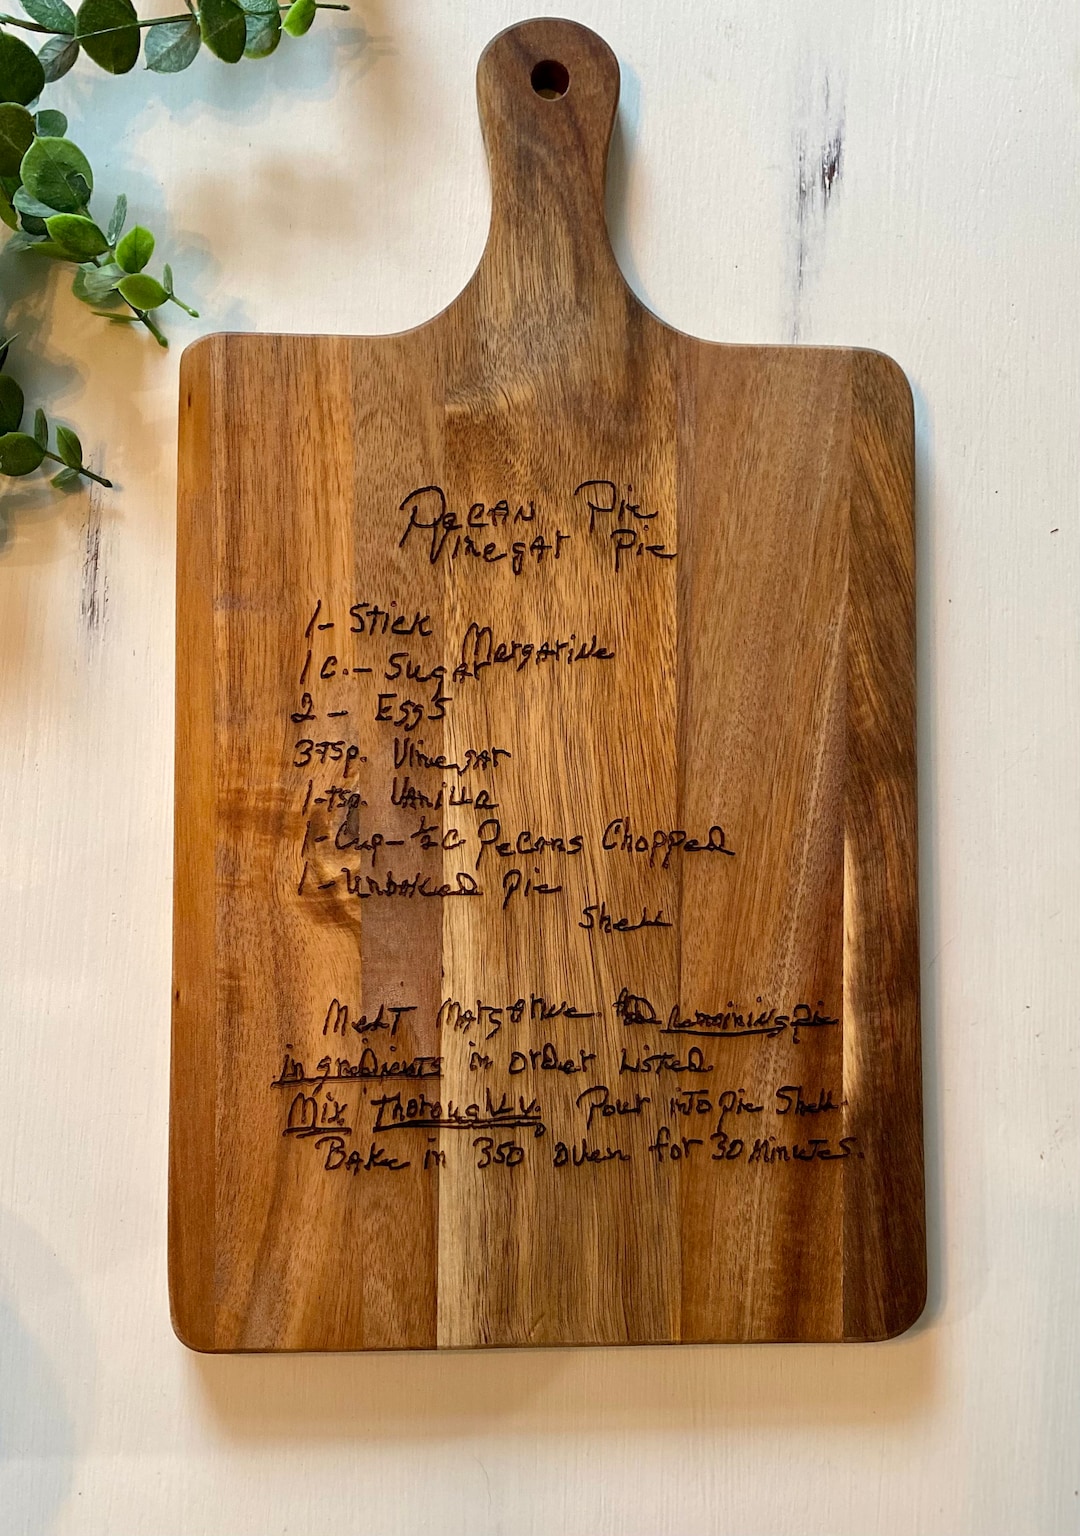 Pecan Pie
Vinegar Pie
1- Stick Margarine
1 C. - Sugar
2 - Eggs
3 Tsp. Vinegar
1-tsp. Vanilla
1-Cup-½C Pecans Chopped
1-Unbaked Pie
Shell
Melt Margarine. Add Remaining Pie
ingredients in order Listed.
Mix Thoroughly. Pour iNTo pie Shell.
Bake in 350° Oven for 30 Minutes.